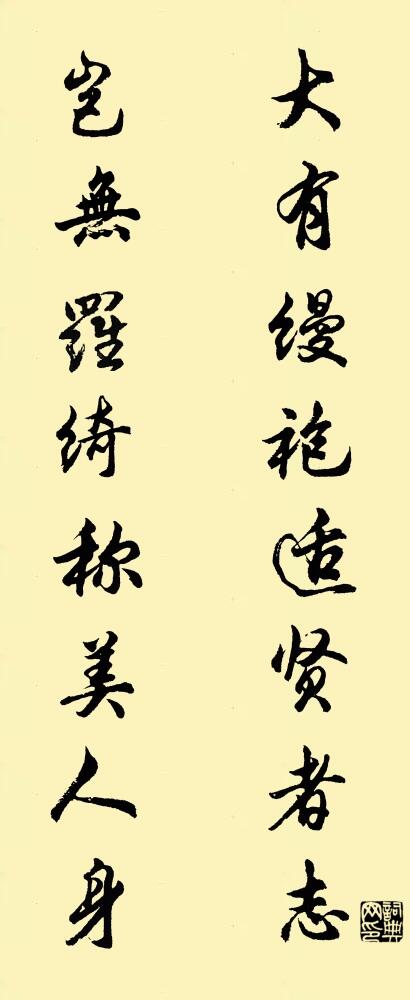 大有缦袍适贤者志
岂無羅绮称美人身
詞典网印